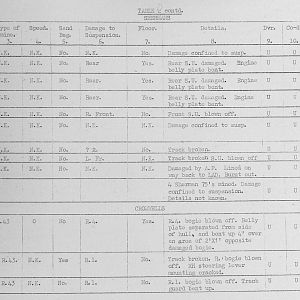 TABLE 2 contd.
Type of Speed. Sand Damage to Floor. Details. Dvr. Co-d
Mine. Bag. Suspension.
3. 4. 5. 6. 7. 8. 9. 10.
N.K. N.K. No N.K. No Damage confined to susp. U U
N.K. N.K. No Rear Yes. Rear S.U. damaged. Engine U U
belly plate bent.
N.K. N.K. No Rear. Yes. Rear S.U. damaged. Engine U U
belly plate bent
N.K. N.K. No Rear. Yes. Rear S.U. damaged. Engine U U
belly plate bent
N.K. N.K. No R. Front. No Front S.U. blown off. U U
N.K. N.K. No N.K. N.K. Damage confined to susp. U U
N.K. N.K. No No Track broken. U U
N.K. N.K. No L. Fr. N.K. Track broken S.U. blown off U U
N.K. N.K. No N.K. N.K. Damaged by A.P. Mined on U U
way back to LAD. Burnt out.
4 Sherman 75's mined. Damage
confined to suspension.
Details not known.
CROMWELLS
R.43 0 No R.4. Yes. R.4. bogie blown off. Belly U U
plate separated from side
of hull, and bent up 4" over
an area of 2'X1' opposite
damaged bogie.
R.43. N.K. Yes R.1. No Track broken. R.1 bogie blown U U
off. RH steering lever
mounting cracked.
R.43 N.K. No R.1. No R.1. bogie blown off. Track U U
guard bent up.